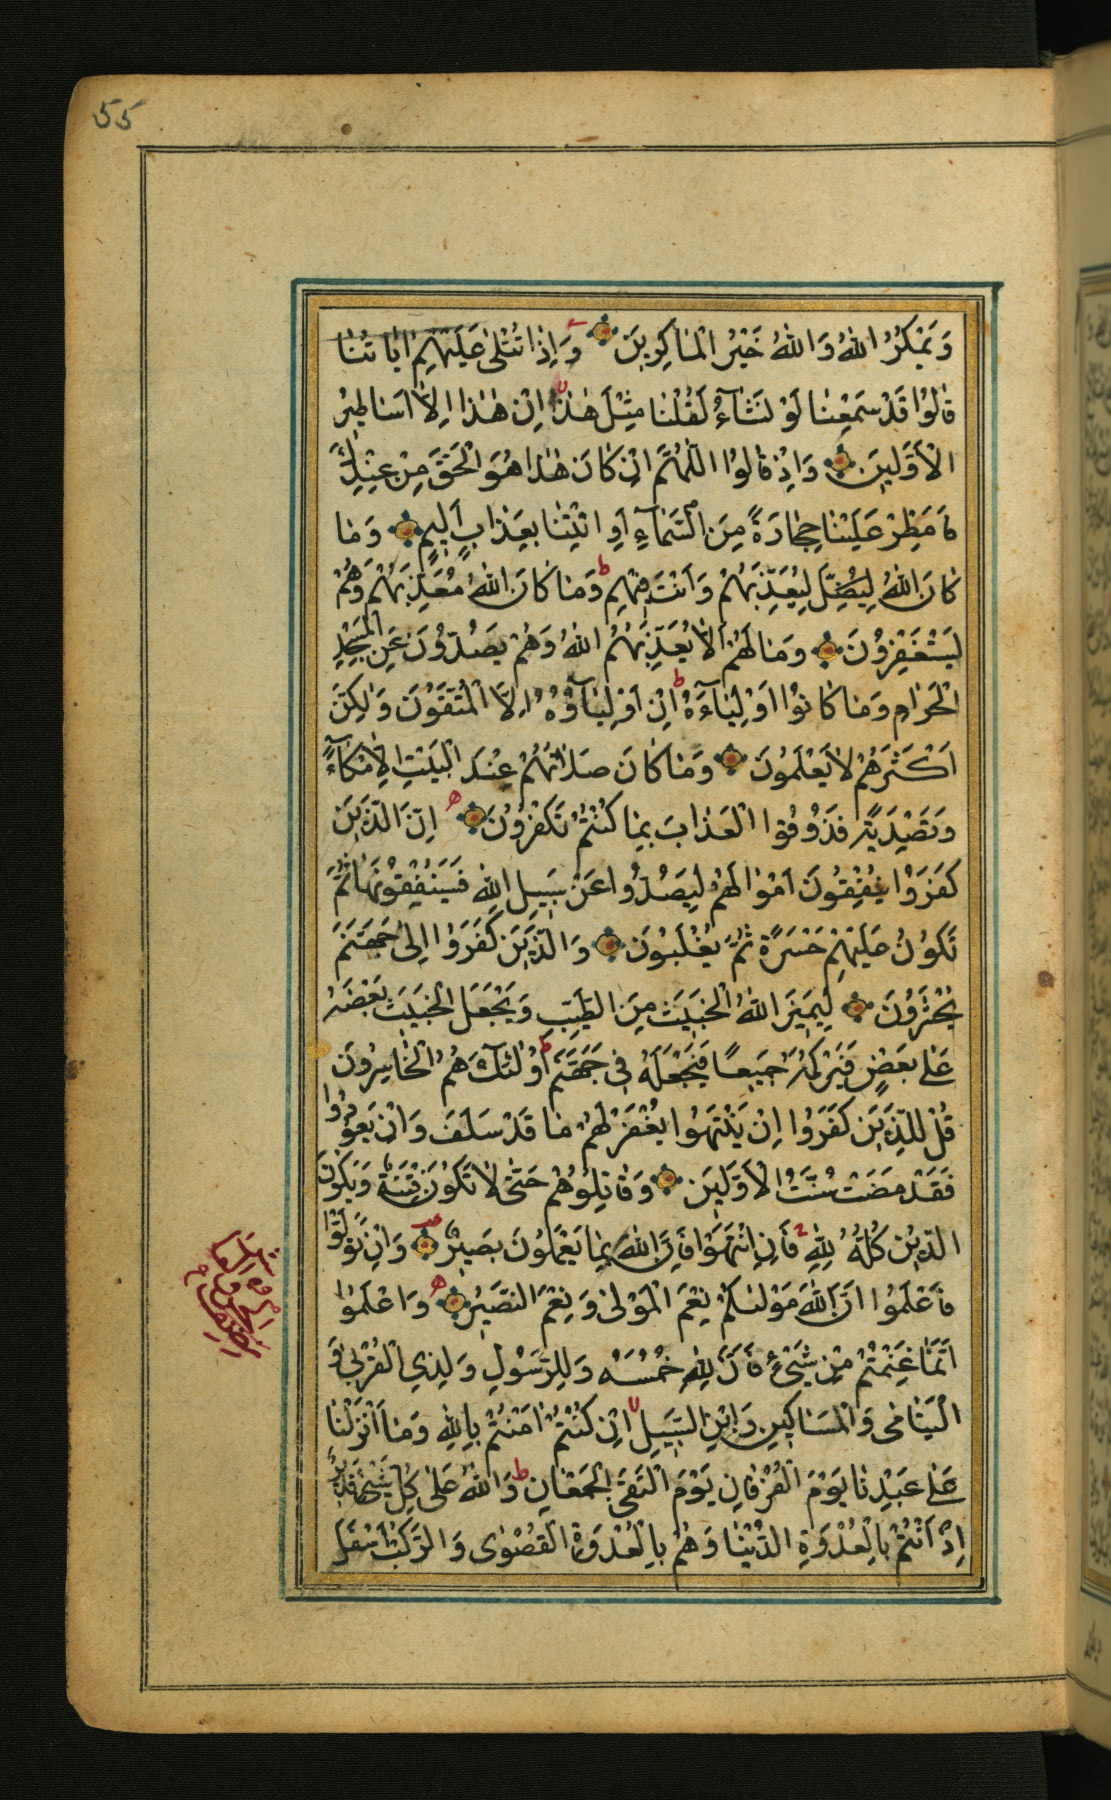 55
وَيَمْكُرُ اللّٰهُ وَاللّٰهُ خَيْرُ الْمَاكِرِينَ وَاِذَا تُتْلٰى عَلَيْهِمْ اٰيَاتُنَا
قَالُوا قَدْ سَمِعْنَا لَوْ نَشَآءُ لَقُلْنَا مِثْلَ هٰذَا اِنْ هٰذَا اِلَّا اَسَاطِيرُ
الْاَوَّلِينَ وَاِذْ قَالُوا اللّٰهُمَّ اِنْ كَانَ هٰذَا هُوَ الْحَقَّ مِنْ عِنْدِكَ
فَاَمْطِرْ عَلَيْنَا حِجَارَةً مِنَ السَّمَآءِ اَوِ ائْتِنَا بِعَذَابٍ اَلِيمٍ وَمَا
كَانَ اللّٰهُ لِيُعَذِّبَهُمْ وَاَنْتَ فِيهِمْ وَمَا كَانَ اللّٰهُ مُعَذِّبَهُمْ وَهُمْ
يَسْتَغْفِرُونَ وَمَا لَهُمْ اَلَّا يُعَذِّبَهُمُ اللّٰهُ وَهُمْ يَصُدُّونَ عَنِ الْمَسْجِدِ
الْحَرَامِ وَمَا كَانُوا اَوْلِيَآءَهُ اِنْ اَوْلِيَآؤُهُ اِلَّا الْمُتَّقُونَ وَلٰكِنَّ
اَكْثَرَهُمْ لَا يَعْلَمُونَ وَمَا كَانَ صَلَاتُهُمْ عِنْدَ الْبَيْتِ اِلَّا مُكَآءً
وَتَصْدِيَةً فَذُوقُوا الْعَذَابَ بِمَا كُنْتُمْ تَكْفُرُونَ اِنَّ الَّذِينَ
كَفَرُوا يُنْفِقُونَ اَمْوَالَهُمْ لِيَصُدُّوا عَنْ سَبِيلِ اللّٰهِ فَسَيُنْفِقُونَهَا ثُمَّ
تَكُونُ عَلَيْهِمْ حَسْرَةً ثُمَّ يُغْلَبُونَ وَالَّذِينَ كَفَرُوا اِلٰى جَهَنَّمَ
يُحْشَرُونَ لِيَمِيزَ اللّٰهُ الْخَبِيثَ مِنَ الطَّيِّبِ وَيَجْعَلَ الْخَبِيثَ بَعْضَهُ
عَلٰى بَعْضٍ فَيَرْكُمَهُ جَمِيعًا فَيَجْعَلَهُ فِي جَهَنَّمَ اُولٰئِكَ هُمُ الْخَاسِرُونَ
قُلْ لِلَّذِينَ كَفَرُوا اِنْ يَنْتَهُوا يُغْفَرْ لَهُمْ مَا قَدْ سَلَفَ وَاِنْ يَعُودُوا
فَقَدْ مَضَتْ سُنَّتُ الْاَوَّلِينَ وَقَاتِلُوهُمْ حَتّٰى لَا تَكُونَ فِتْنَةٌ وَيَكُونَ
الدِّينُ كُلُّهُ لِلّٰهِ فَاِنِ انْتَهَوْا فَاِنَّ اللّٰهَ بِمَا يَعْمَلُونَ بَصِيرٌ وَاِنْ تَوَلَّوْا
فَاعْلَمُوا اَنَّ اللّٰهَ مَوْلٰىكُمْ نِعْمَ الْمَوْلٰى وَنِعْمَ النَّصِيرُ وَاعْلَمُوا
اَنَّمَا غَنِمْتُمْ مِنْ شَيْءٍ فَاَنَّ لِلّٰهِ خُمُسَهُ وَلِلرَّسُولِ وَلِذِي الْقُرْبٰى وَ
الْيَتَامٰى وَالْمَسَاكِينِ وَابْنِ السَّبِيلِ اِنْ كُنْتُمْ اٰمَنْتُمْ بِاللّٰهِ وَمَا اَنْزَلْنَا
عَلٰى عَبْدِنَا يَوْمَ الْفُرْقَانِ يَوْمَ الْتَقَى الْجَمْعَانِ وَاللّٰهُ عَلٰى كُلِّ شَيْءٍ قَدِيرٌ
اِذْ اَنْتُمْ بِالْعُدْوَةِ الدُّنْيَا وَهُمْ بِالْعُدْوَةِ الْقُصْوٰى وَالرَّكْبُ اَسْفَلَ